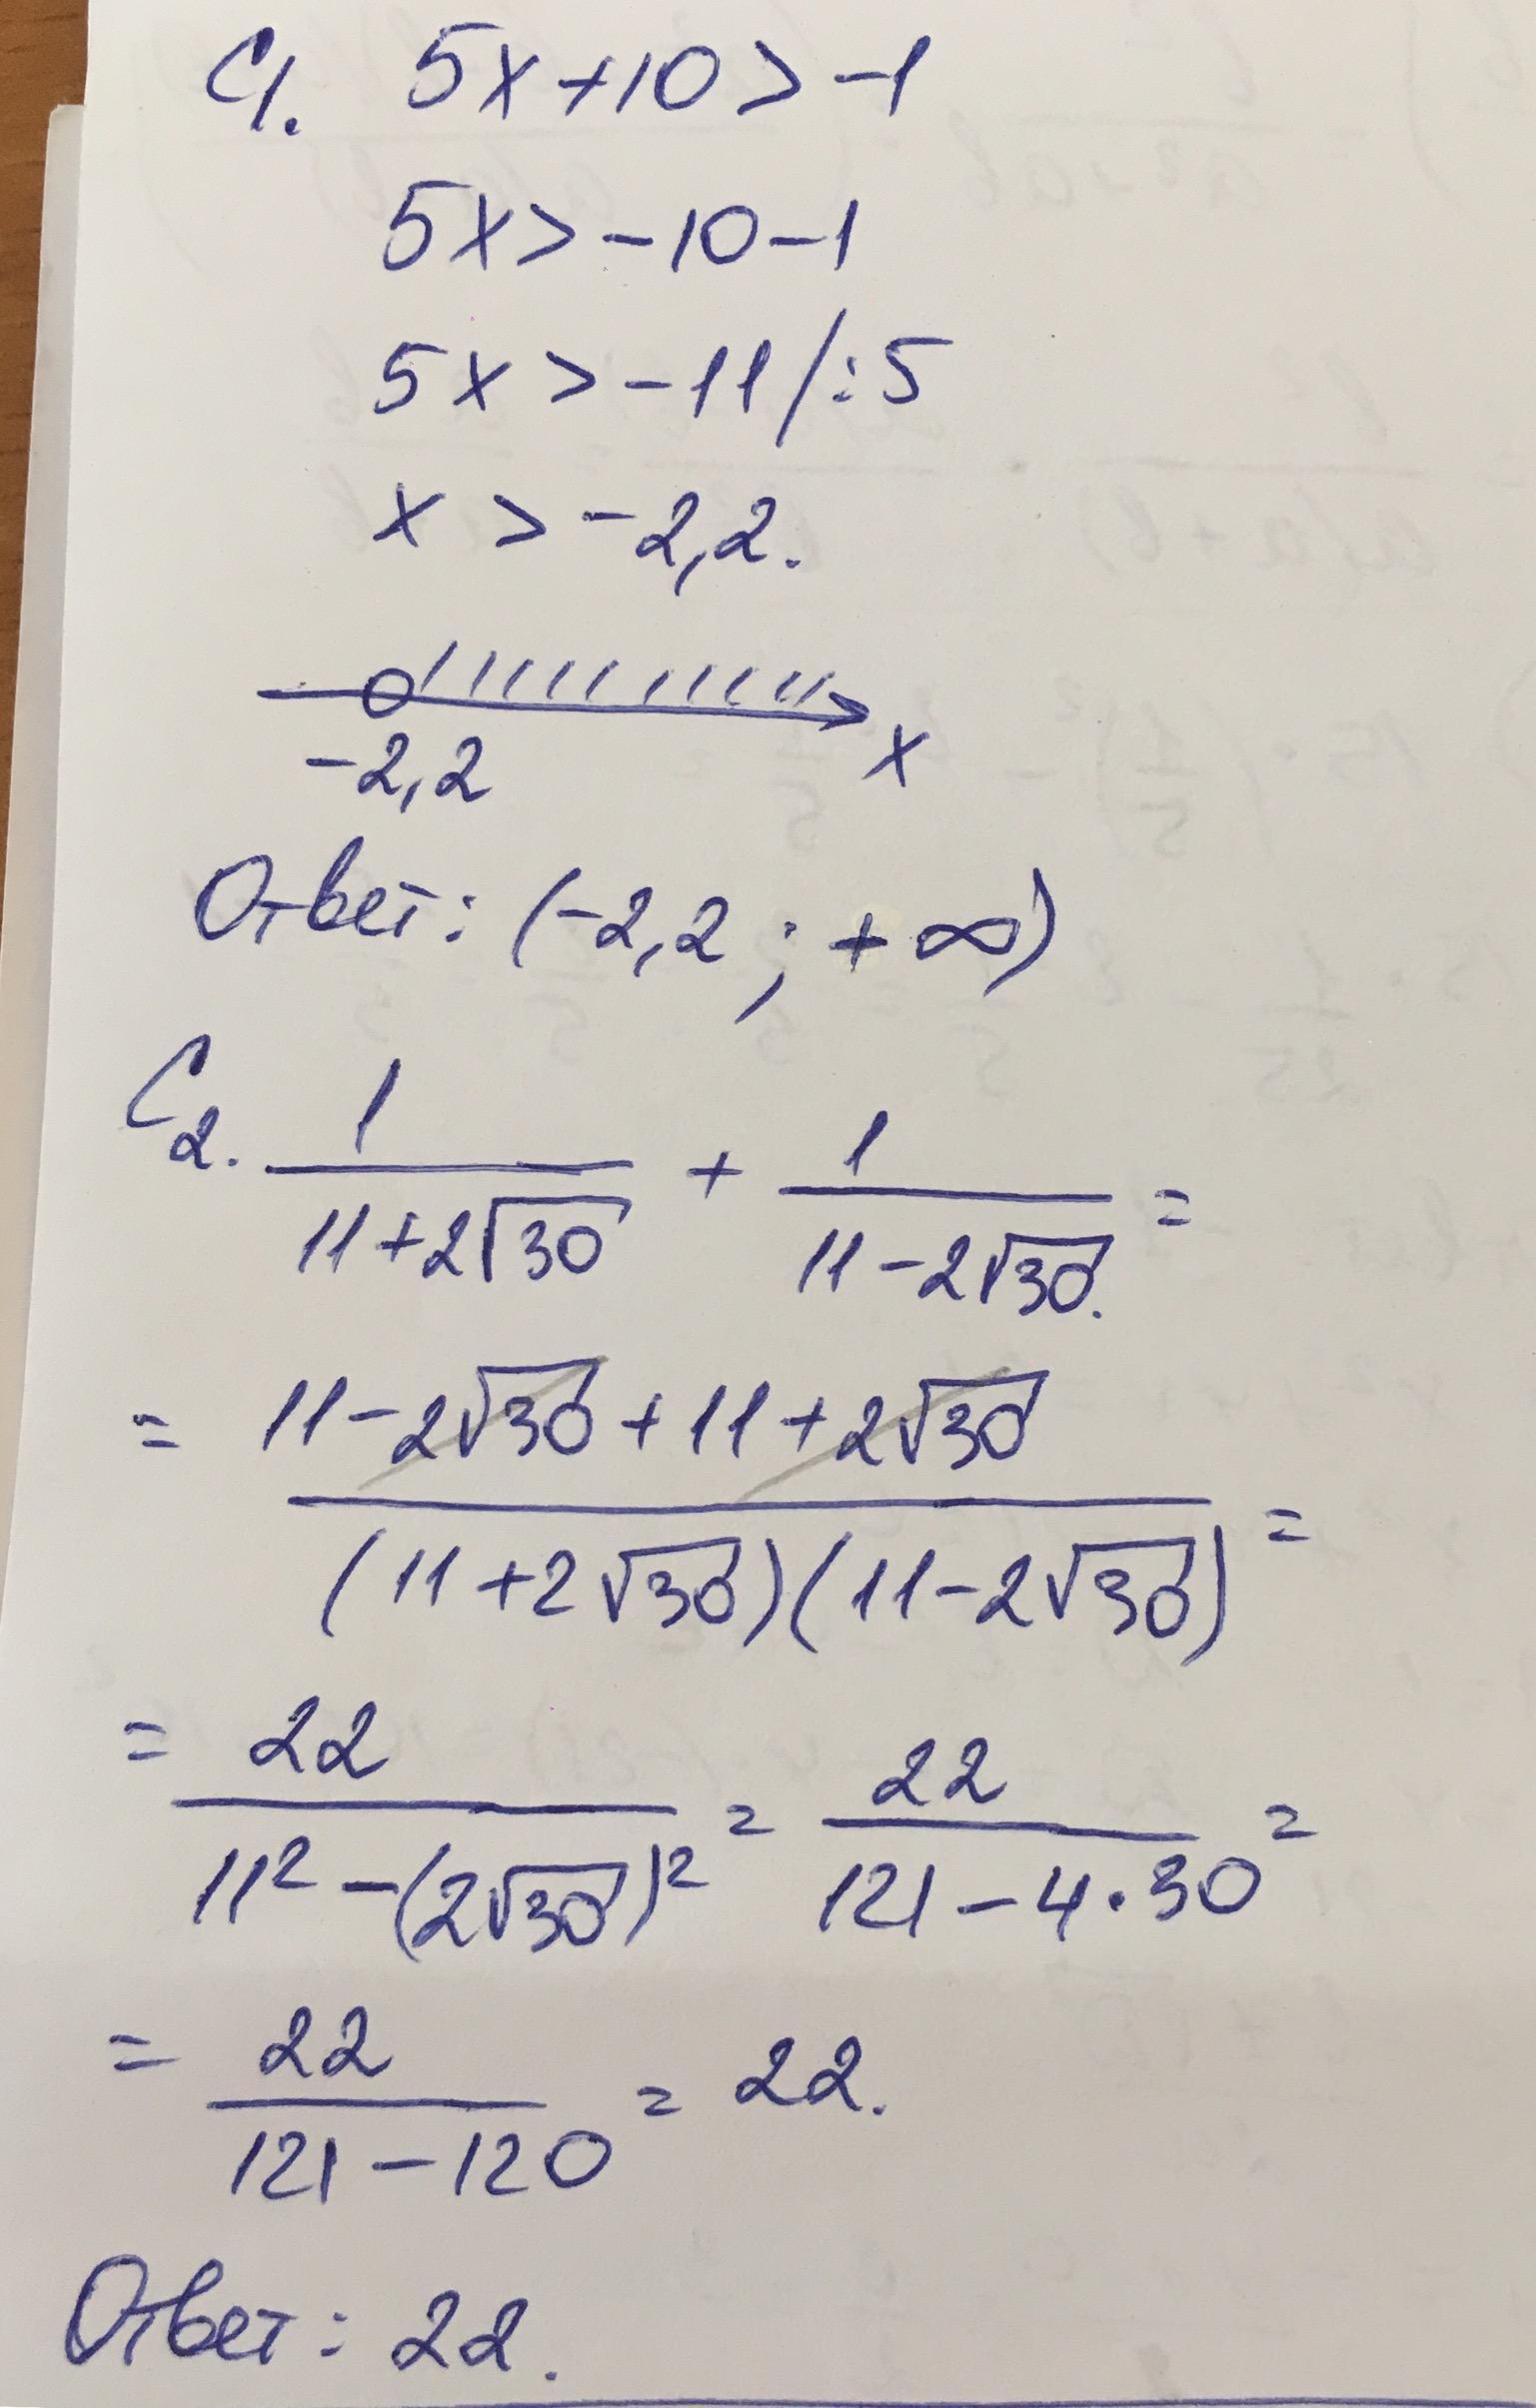 C1. 5x+10>-1
5x>-10-1
5x>-11/:5
x>-2,2.
-2,2 x
Ответ: (-2,2; +∞)
C2. 1/(11+2√30) + 1/(11-2√30) =
= (11-2√30+11+2√30)/((11+2√30)(11-2√30)) =
= 22/(11²-(2√30)²) = 22/(121-4·30) =
= 22/(121-120) = 22.
Ответ: 22.